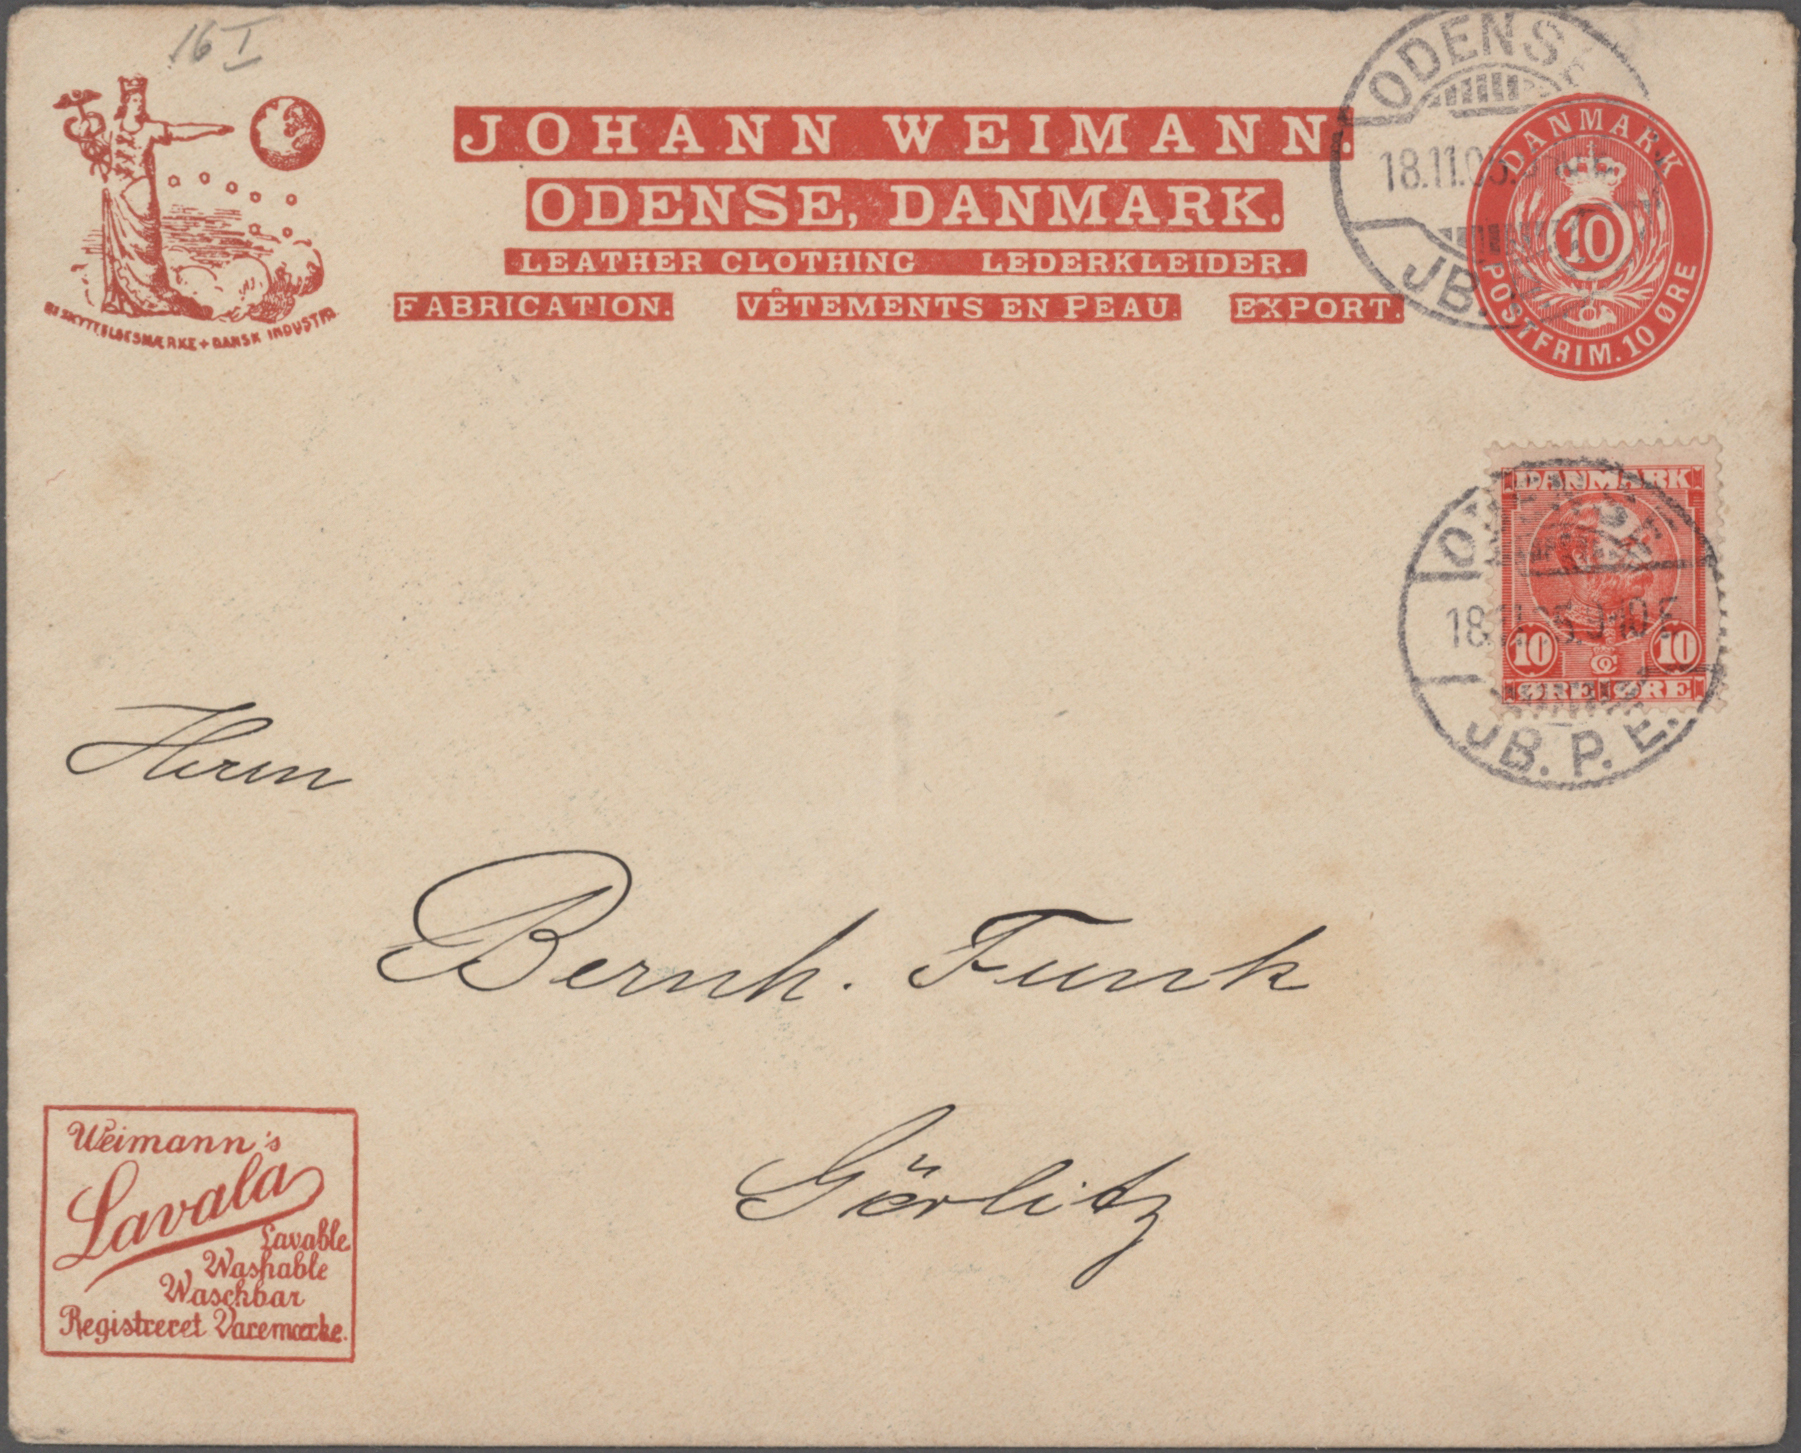 16 I
JOHANN WEIMANN.
ODENSE, DANMARK.
LEATHER CLOTHING LEDERKLEIDER.
FABRICATION. VÊTEMENTS EN PEAU. EXPORT.
BESKYTTELSESMÆRKE + DANSK INDUSTRI
ODENSE
18.11.05.
JB.
DANMARK
10
POSTFRIM. 10 ØRE
DANMARK
10 10
ØRE ØRE
ODENSE
18.11.05. 9-10 F
JB. P. E.
Herrn
Bernh. Funk
Görlitz
Weimann's
Lavala
Lavable
Washable
Waschbar
Registreret Varemærke.